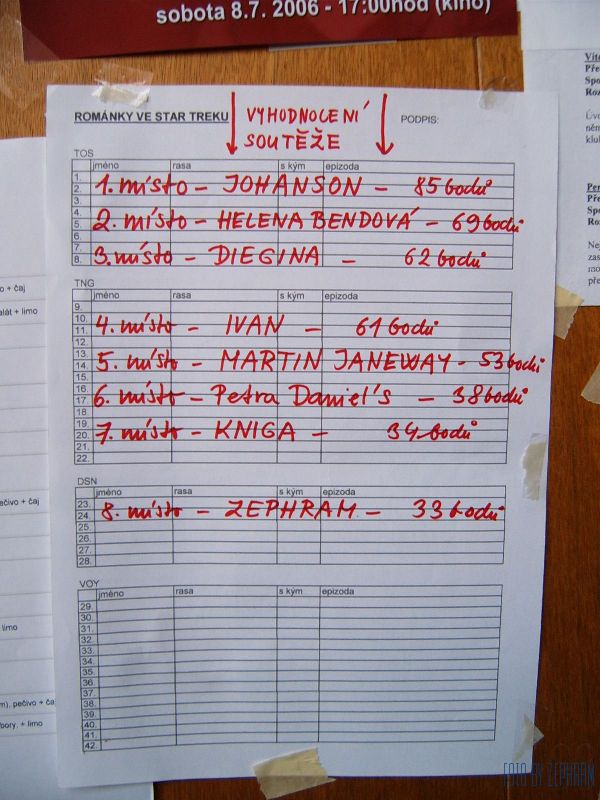 sobota 8.7. 2006 - 17:00hod (kino)
ROMÁNKY VE STAR TREKU
VYHODNOCENÍ
SOUTĚŽE
PODPIS:
TOS
jméno rasa s kým epizoda
1.
2.
3.
4.
5.
6.
7.
8.
1. místo - JOHANSON - 85 bodů
2. místo - HELENA BENDOVÁ - 69 bodů
3. místo - DIEGINA - 62 bodů
TNG
jméno rasa s kým epizoda
9.
10.
11.
12.
13.
14.
15.
16.
17.
18.
19.
20.
21.
22.
4. místo - IVAN - 61 bodů
5. místo - MARTIN JANEWAY - 53 bodů
6. místo - Petra Daniel's - 38 bodů
7. místo - KNIGA - 34 bodů
DSN
jméno rasa s kým epizoda
23.
24.
25.
26.
27.
28.
8. místo - ZEPHRAM - 33 bodů
VOY
jméno rasa s kým epizoda
29.
30.
31.
32.
33.
34.
35.
36.
37.
38.
39.
40.
41.
42.
o + čaj
alát + limo
pečivo + čaj
limo
m), pečivo + čaj
bory, + limo
Pře
Spo
Roz
Úvo
něm
klub
Per
Pře
Spo
Roz
Nej
zas
mo
pře
FOTO BY ZEPHRAM